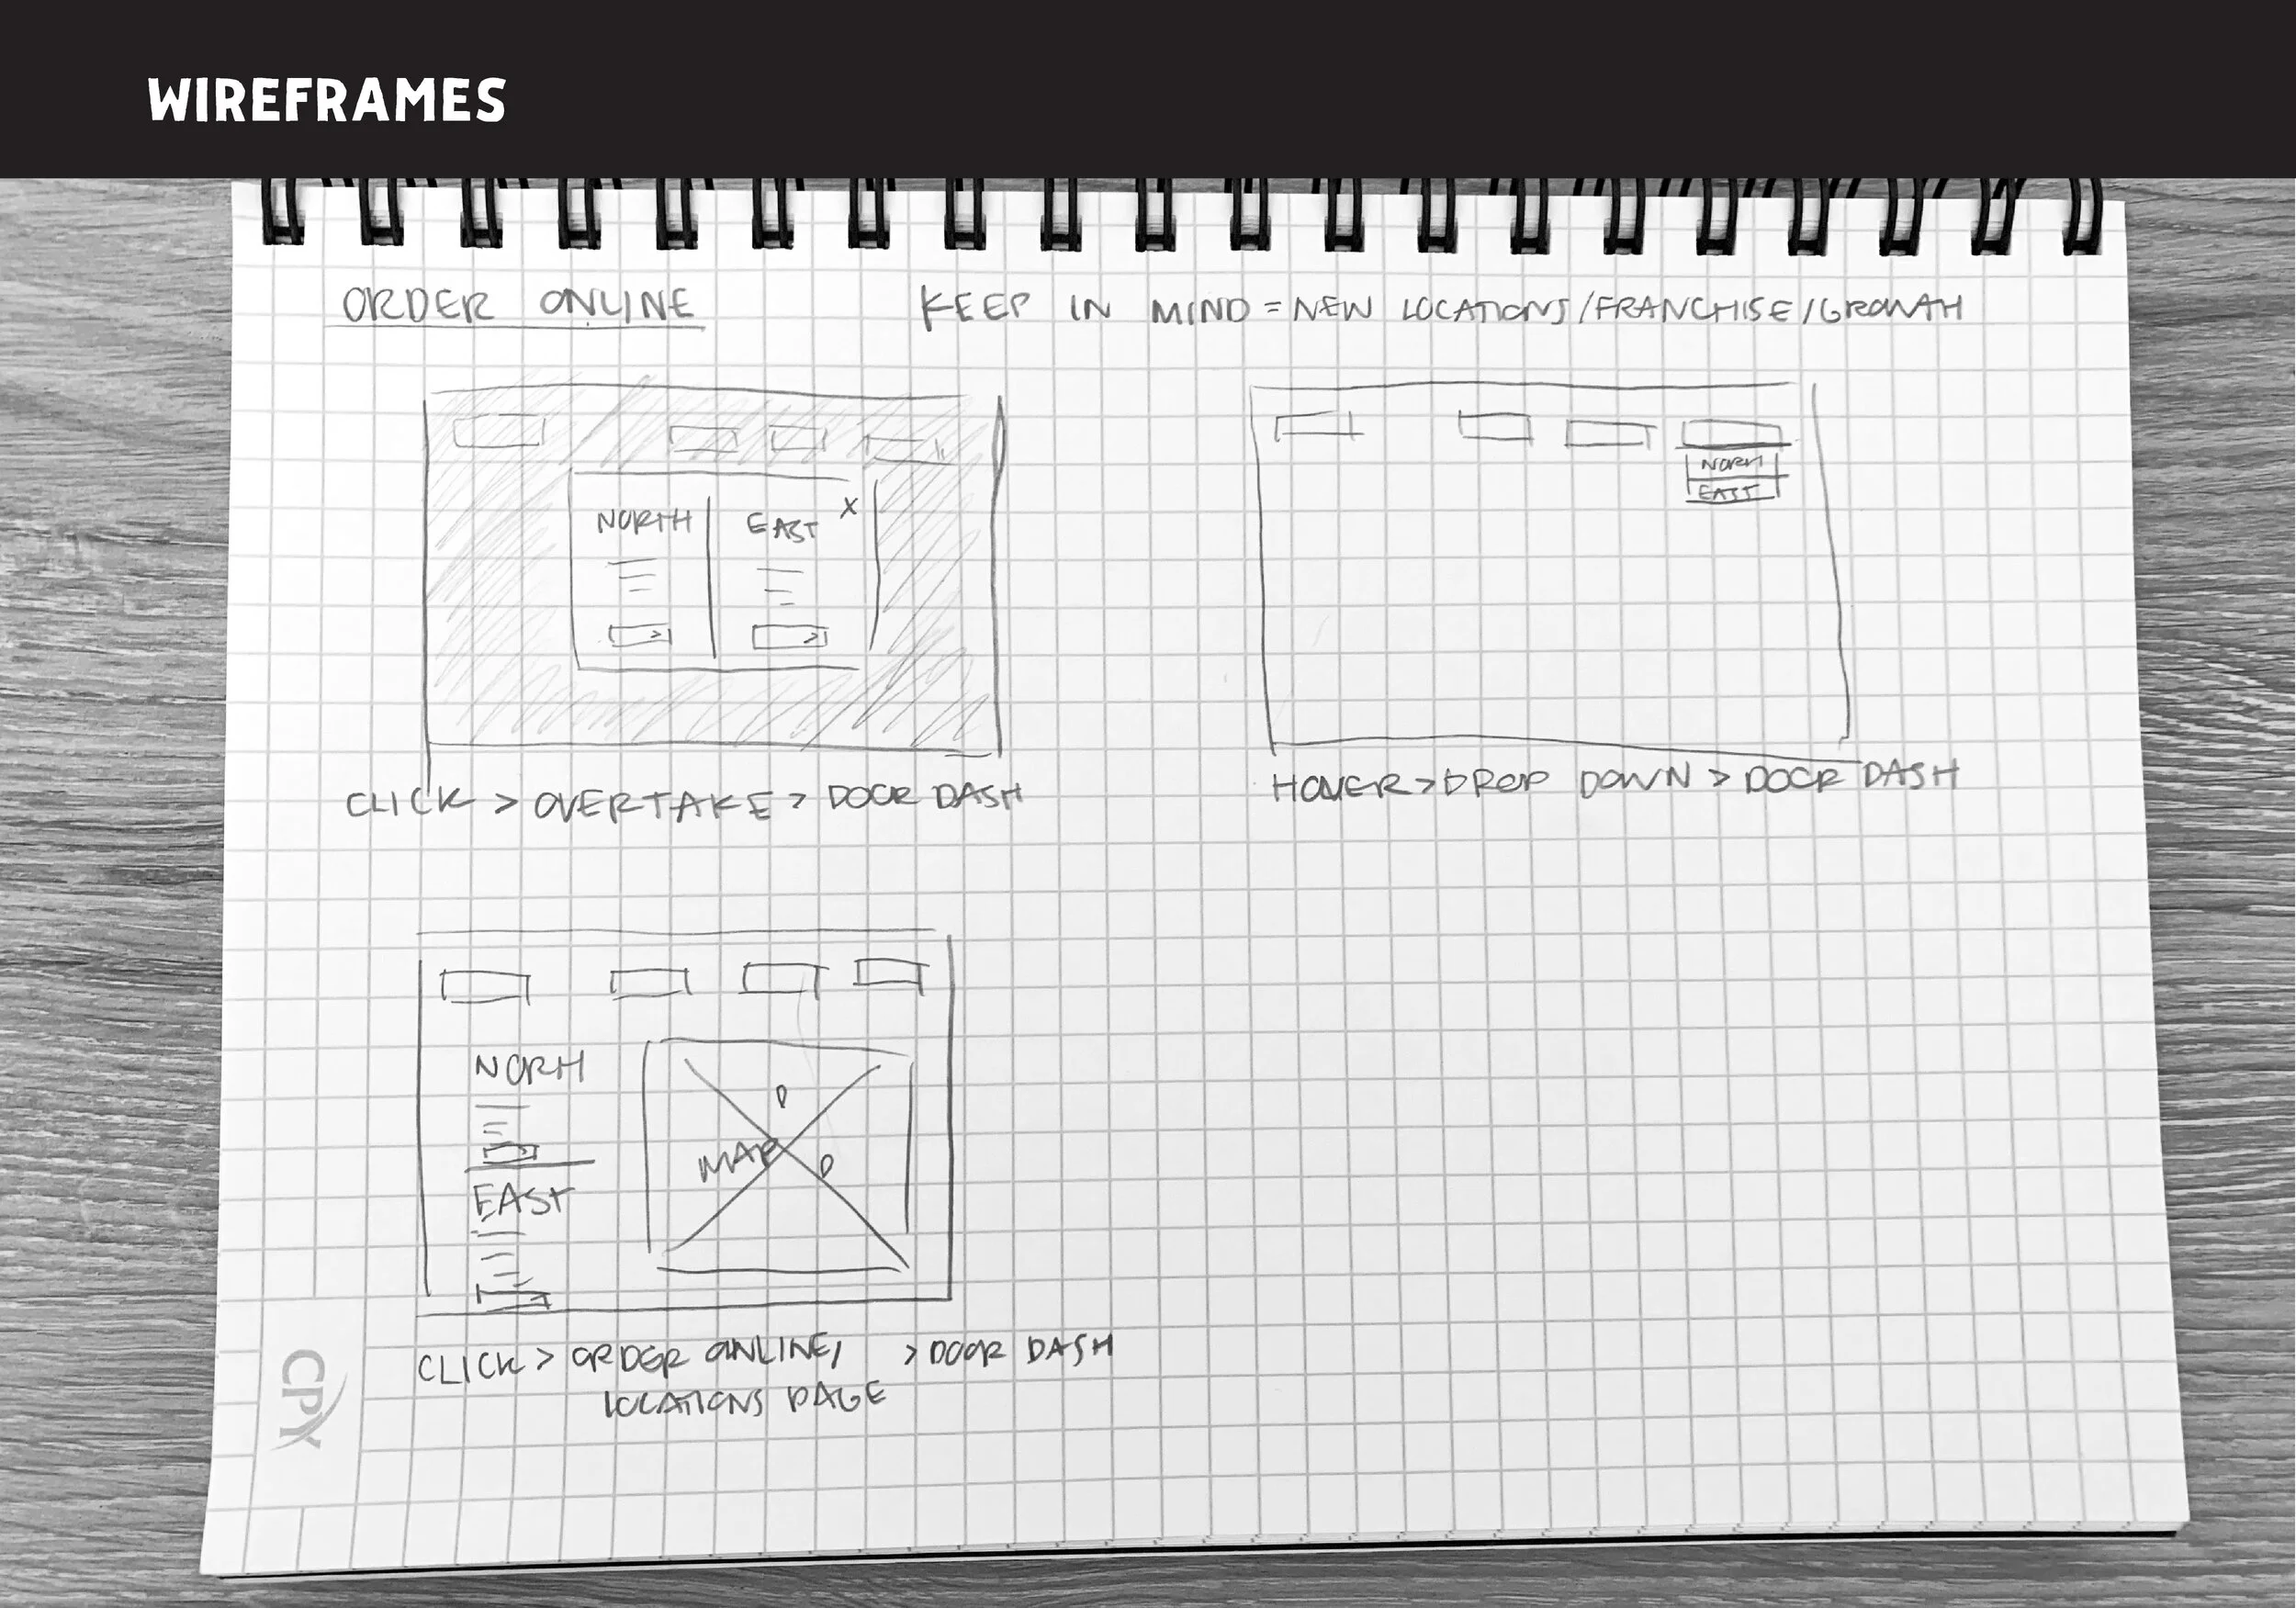 WIREFRAMES
ORDER ONLINE
KEEP IN MIND = NEW LOCATIONS/FRANCHISE/GROWTH
NORTH
EAST
X
CLICK > OVERTAKE > DOOR DASH
NORTH
EAST
HOVER > DROP DOWN > DOOR DASH
NORH
EAST
MAP
CLICK > ORDER ONLINE/ > DOOR DASH
LOCATIONS PAGE
CPY